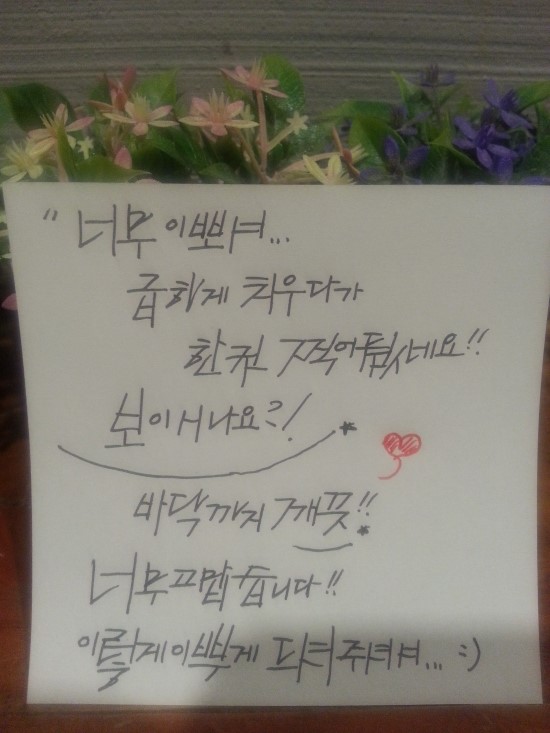 "너무 이뽀셔...
급하게 치우다가
한컷 찍어뒀네요!!
보이시나요?!
바닥까지 깨끗!!
너무 고맙습니다!!
이렇게 이쁘게 드셔주셔셔... :)